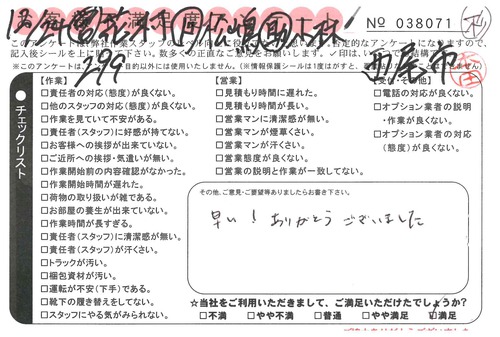 No 038071
このアンケートは、弊社作業スタッフの
否定的なアンケートになりますので、
記入後シールを上に
※このアンケートは、
目的以外には使用いたしません。(※情報保護シールは1度はがすと、
チェックリスト
【作業】
□責任者の対応(態度)が良くない。
□他のスタッフの対応(態度)が良くない。
□作業を見ていて不安がある。
□責任者(スタッフ)に好感が持てない。
□お客様への挨拶が出来ていない。
□ご近所への挨拶・気遣いが無い。
□作業開始前の内容確認がなかった。
□作業開始時間が遅れた。
□荷物の取り扱いが雑である。
□お部屋の養生が出来ていない。
□作業時間が長すぎる。
□責任者(スタッフ)に清潔感が無い。
□責任者(スタッフ)が汗くさい。
□トラックが汚い。
□梱包資材が汚い。
□運転が不安(下手)である。
□靴下の履き替えをしてない。
□スタッフにやる気がみられない。
【営業】
□見積もり時間に遅れた。
□見積もり時間が長い。
□営業マンに清潔感が無い。
□営業マンが煙草くさい。
□営業マンが汗くさい。
□営業態度が良くない。
□営業の説明と作業が一致してない。
【受付・その他】
□電話の対応が良くない。
□オプション業者の説明
・作業が良くない。
□オプション業者の対応
(態度)が良くない。
その他、ご意見・ご要望等ありましたらお書き下さい。
早い!ありがとうございました
☆当社をご利用いただきまして、ご満足いただけたでしょうか?
□不満 □やや不満 □普通 □やや満足 ☑満足